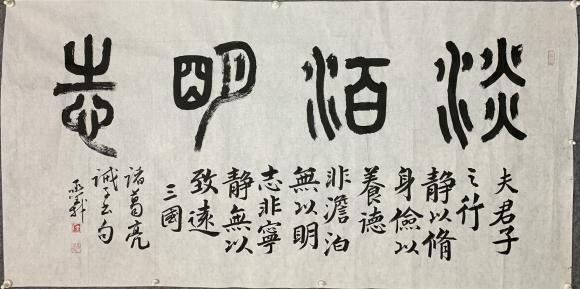 淡泊明志
夫君子
之行
静以脩
身儉以
養德
非澹泊
無以明
志非寧
静無以
致遠
三國
諸葛亮
誡子書句